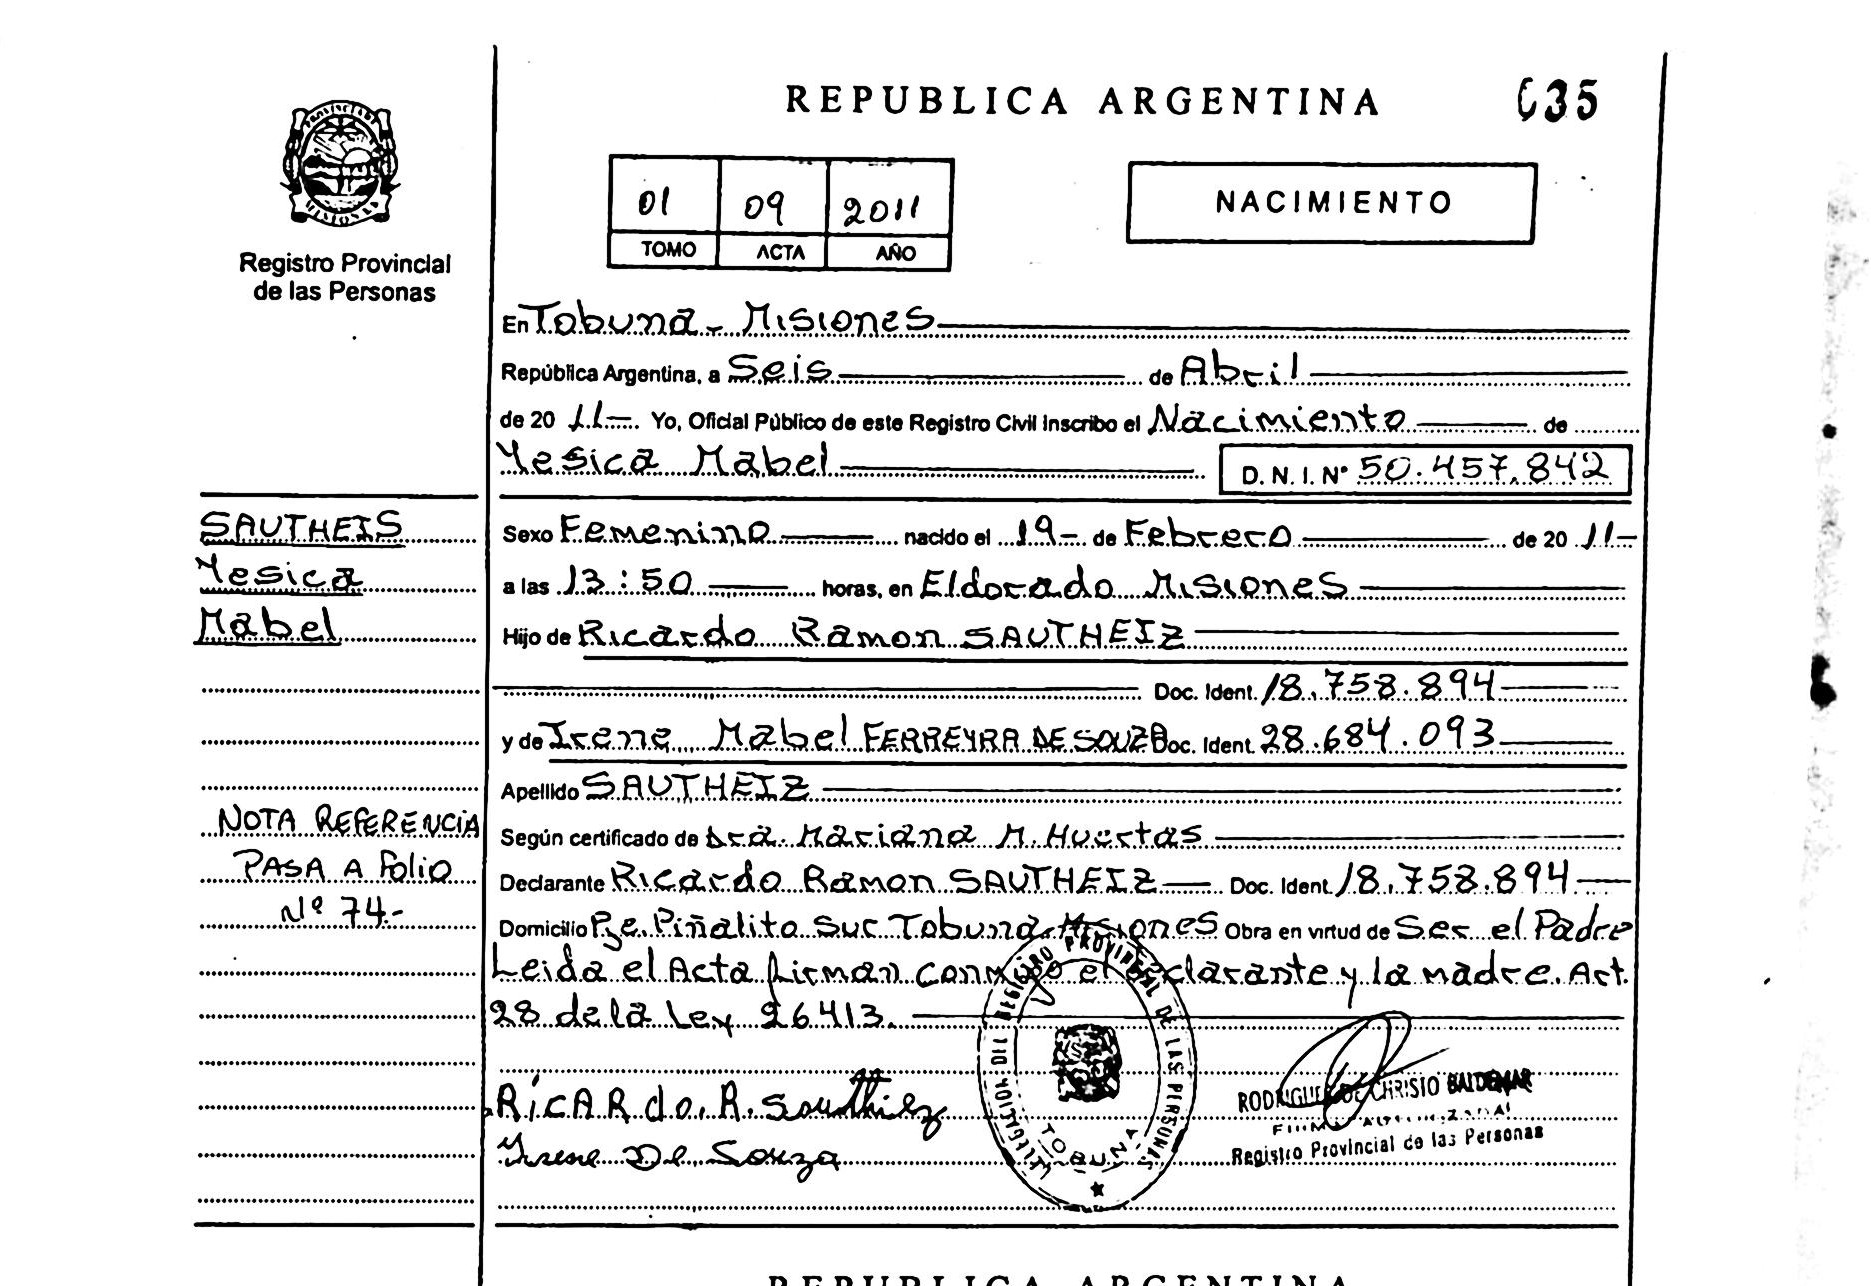 REPUBLICA ARGENTINA
035
PROVINCIA DE
MISIONES
Registro Provincial
de las Personas
01 09 2011
TOMO ACTA AÑO
NACIMIENTO
En Tobuna - Misiones
República Argentina, a Seis de Abril
de 20 11 Yo, Oficial Público de este Registro Civil Inscribo el Nacimiento de
Yesica Mabel D. N. I. Nº 50.457.842
SAUTHEIS
Yesica
Mabel
Sexo Femenino nacido el 19 de Febrero de 20 11
a las 13:50 horas, en Eldorado Misiones
Hijo de Ricardo Ramon SAUTHEIZ
Doc. Ident. 18.758.894
y de Irene Mabel FERREYRA DE SOUZA Doc. Ident. 28.684.093
Apellido SAUTHEIZ
NOTA REFERENCIA
PASA A Folio
Nº 74.-
Según certificado de Dra. Mariana M. Huertas
Declarante Ricardo Ramon SAUTHEIZ Doc. Ident. 18.758.894
Domicilio Pje. Piñalito Sur Tobuna Misiones Obra en virtud de Ser el Padre
Leida el Acta firman conmigo el declarante y la madre. Art.
28 de la Ley 26413.
RicARdo. R. Southiez
Irene De Souza
DELEGACION DEL REGISTRO PROVINCIAL DE LAS PERSONAS
TOBUNA
RODRIGUEZ DE CHRISTO BALDEMAR
Registro Provincial de las Personas
REPUBLICA ARGENTINA